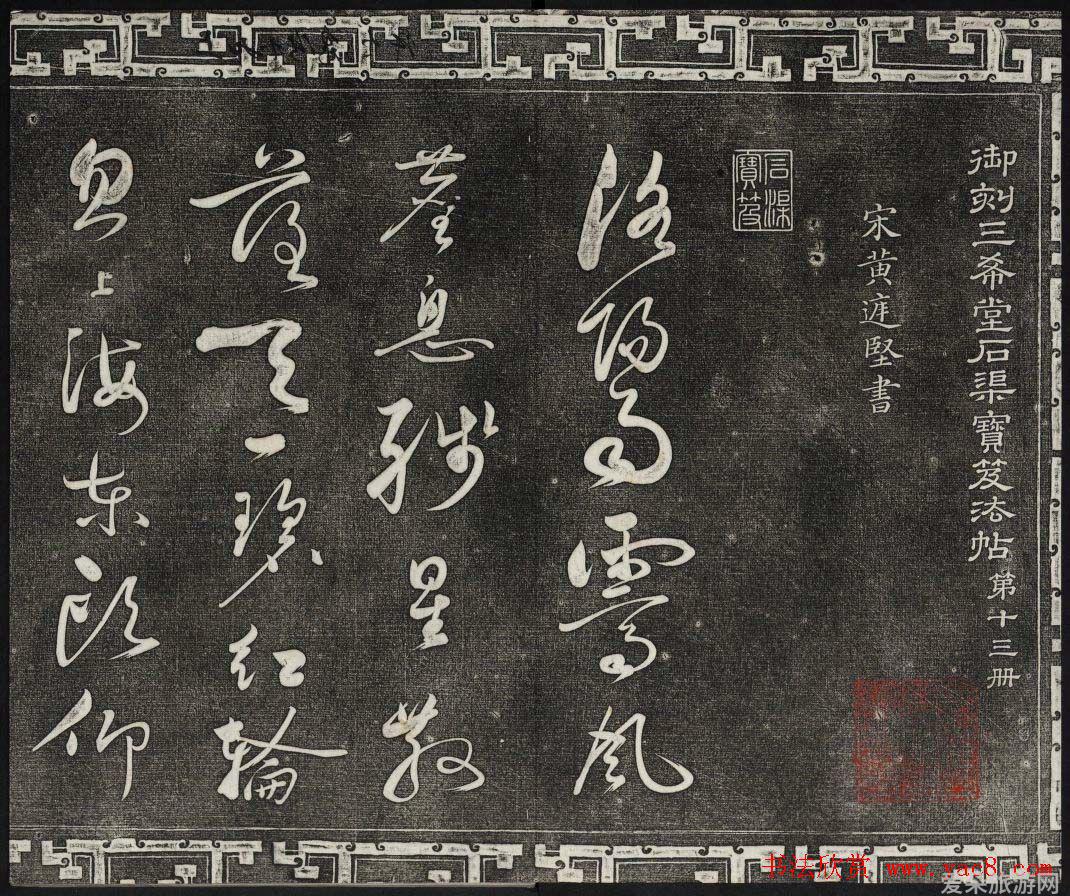 御刻三希堂石渠寶笈法帖 第十三册
宋黄庭堅書
石渠寶笈
洛陽雨霽風
息殘星散
落天一碧紅輪
忽上海東頭仰
书法欣赏 www.yac8.com
爱东旅游网